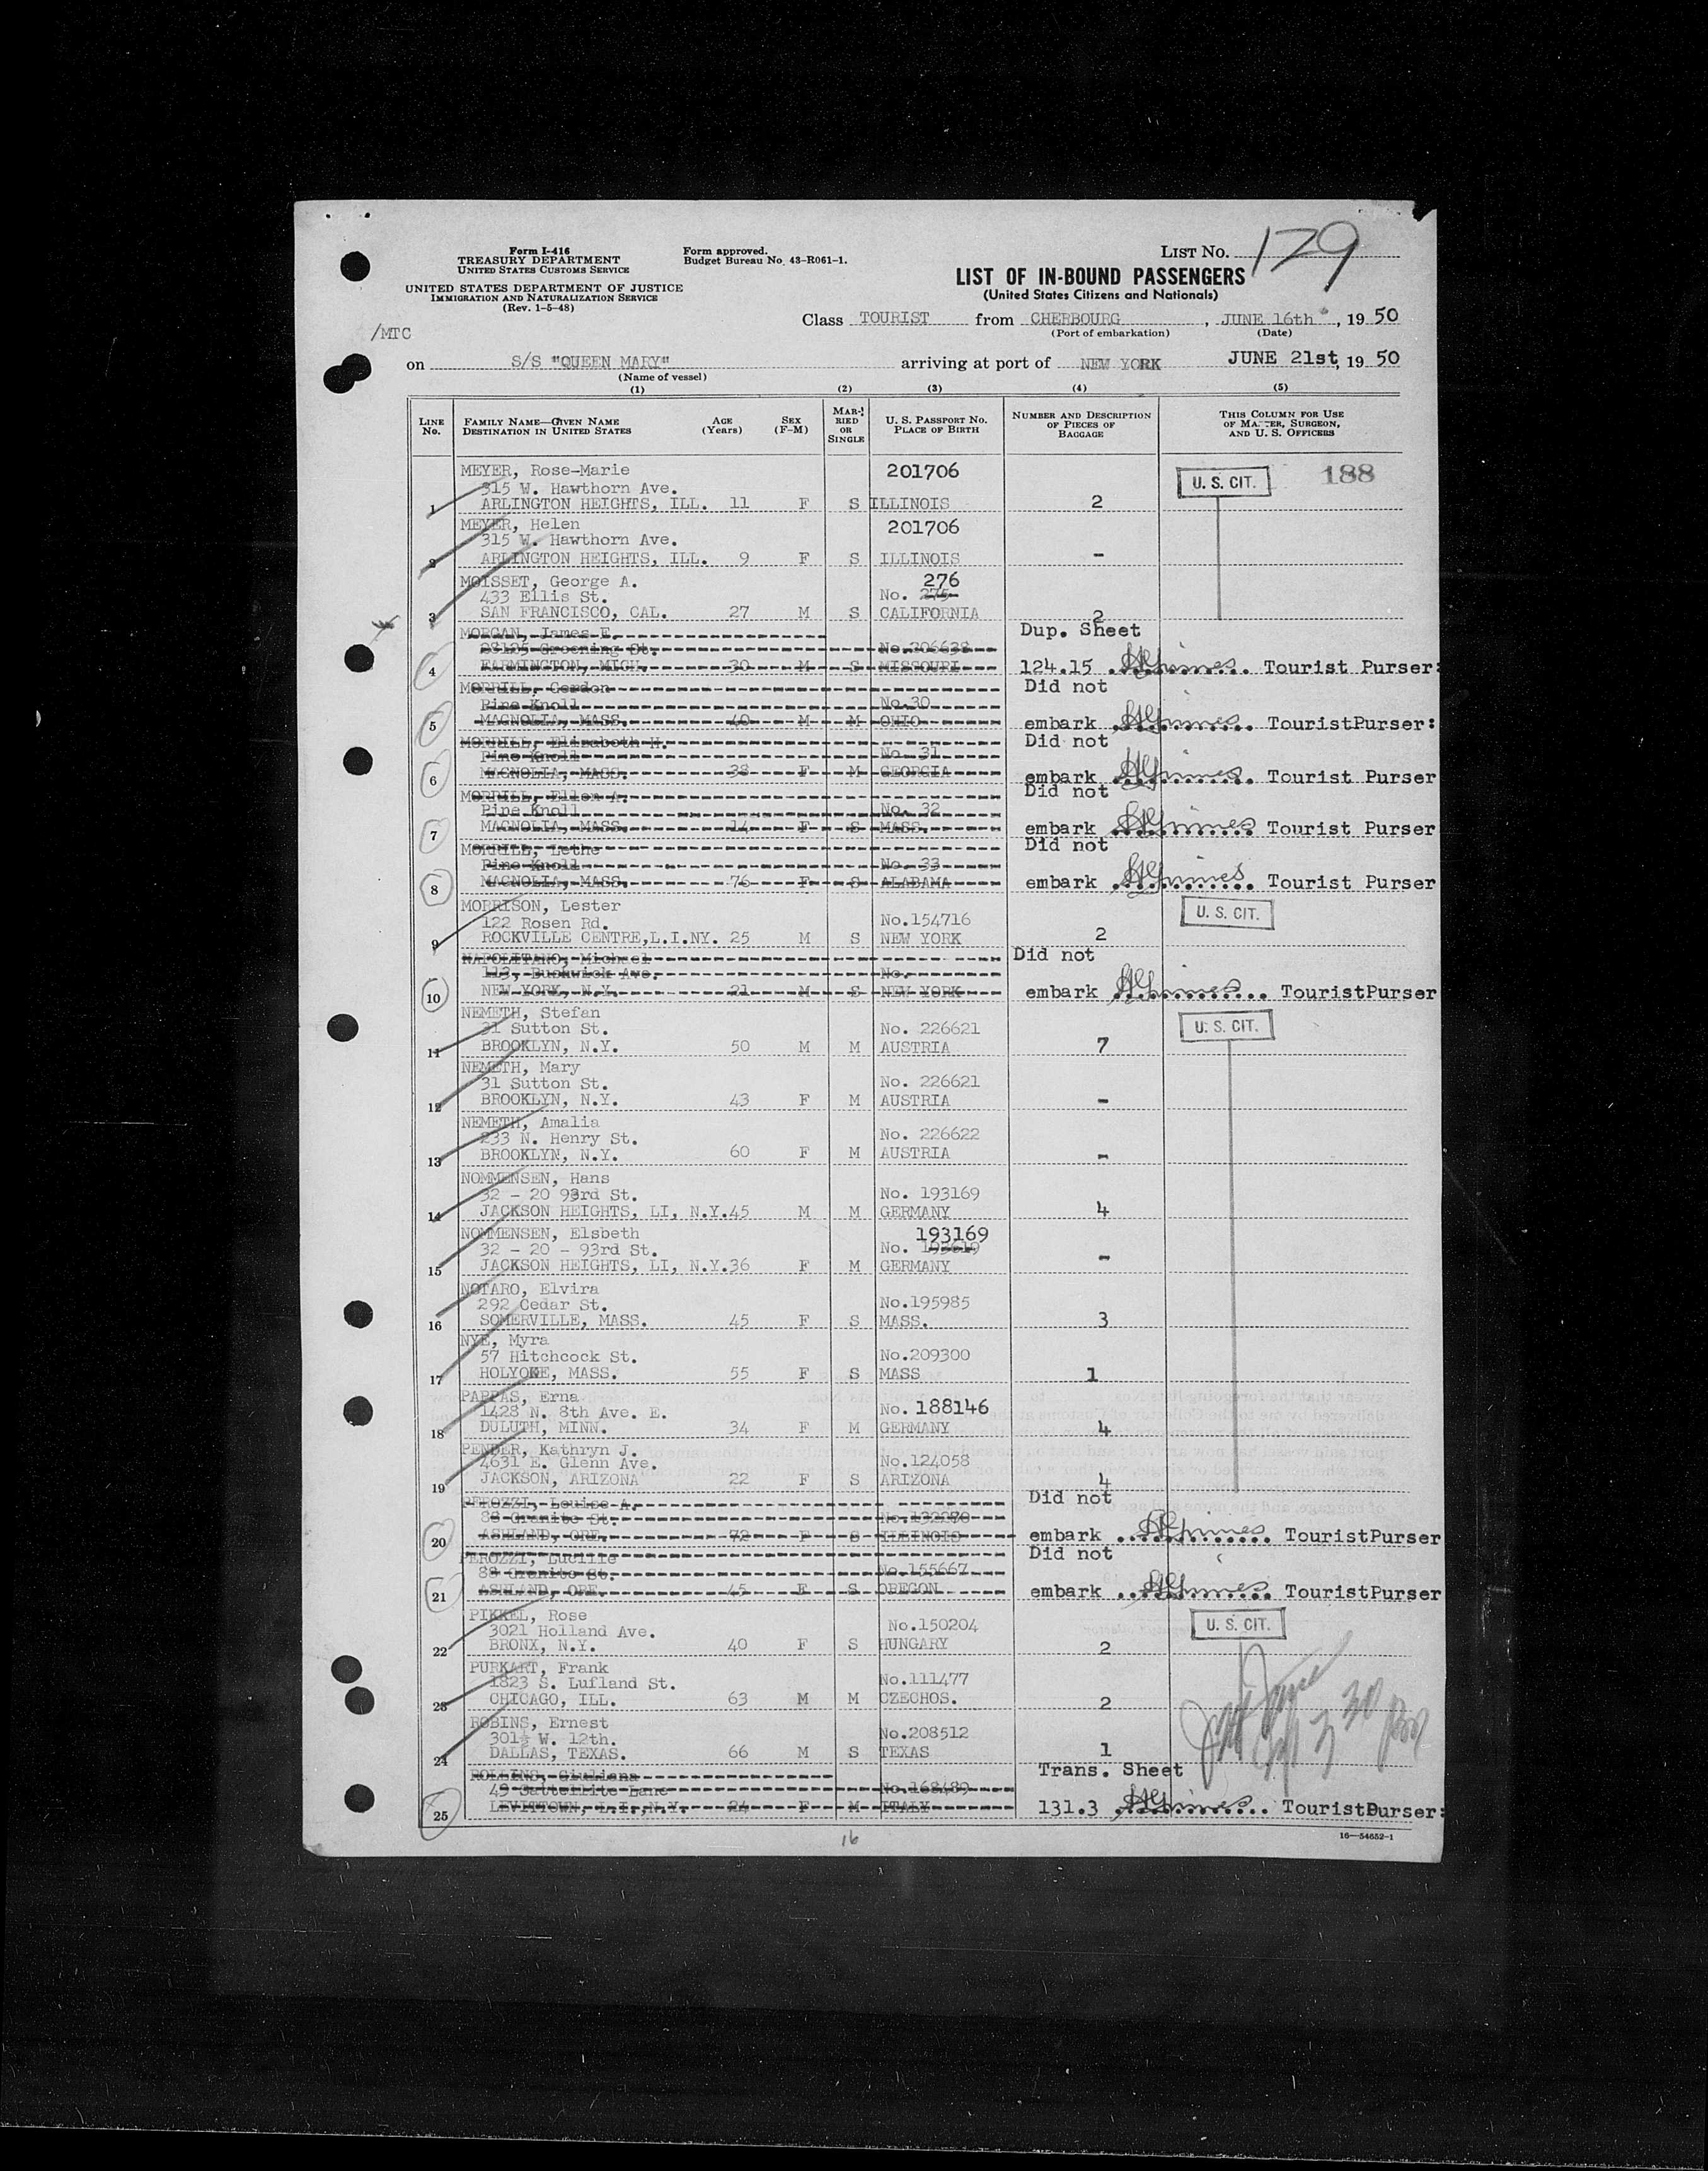 Form I-416
TREASURY DEPARTMENT
UNITED STATES CUSTOMS SERVICE
UNITED STATES DEPARTMENT OF JUSTICE
IMMIGRATION AND NATURALIZATION SERVICE
(Rev. 1-5-48)
Form approved.
Budget Bureau No. 43-R061-1.
LIST No. 179
LIST OF IN-BOUND PASSENGERS
(United States Citizens and Nationals)
Class TOURIST from CHERBOURG, JUNE 16th, 1950
(Port of embarkation) (Date)
/MTC
on S/S "QUEEN MARY" arriving at port of NEW YORK JUNE 21st, 1950
(Name of vessel)
(1) (2) (3) (4) (5)
LINE No. FAMILY NAME—GIVEN NAME DESTINATION IN UNITED STATES AGE (Years) SEX (F-M) MARRIED OR SINGLE U. S. PASSPORT No. PLACE OF BIRTH NUMBER AND DESCRIPTION OF PIECES OF BAGGAGE THIS COLUMN FOR USE OF MASTER, SURGEON, AND U. S. OFFICERS
MEYER, Rose-Marie 201706 U. S. CIT. 188
315 W. Hawthorn Ave.
1 ARLINGTON HEIGHTS, ILL. 11 F S ILLINOIS 2
MEYER, Helen 201706
315 W. Hawthorn Ave.
2 ARLINGTON HEIGHTS, ILL. 9 F S ILLINOIS -
MOISSET, George A. 276
433 Ellis St. No. 275
3 SAN FRANCISCO, CAL. 27 M S CALIFORNIA 2
MORGAN, James E. Dup. Sheet
28125 Greening St. No.206638
4 FARMINGTON, MICH. 30 M S MISSOURI 124.15 Tourist Purser:
MORRILL, Gordon Did not
Pine Knoll No.30
5 MAGNOLIA, MASS. 40 M M OHIO embark TouristPurser:
MORRILL, Elizabeth H. Did not
Pine Knoll No. 31
6 MAGNOLIA, MASS. 38 F M GEORGIA embark Tourist Purser
MORRILL, Ellen A. Did not
Pine Knoll No. 32
7 MAGNOLIA, MASS. 14 F S MASS. embark Tourist Purser
MORRILL, Lethe Did not
Pine Knoll No. 33
8 MAGNOLIA, MASS. 76 F S ALABAMA embark Tourist Purser
MORRISON, Lester U. S. CIT.
122 Rosen Rd. No.154716
9 ROCKVILLE CENTRE,L.I.NY. 25 M S NEW YORK 2
NAPOLITANO, Michael Did not
113, Bushwick Ave. No.
10 NEW YORK, N.Y. 21 M S NEW YORK embark TouristPurser
NEMETH, Stefan U. S. CIT.
31 Sutton St. No. 226621
11 BROOKLYN, N.Y. 50 M M AUSTRIA 7
NEMETH, Mary
31 Sutton St. No. 226621
12 BROOKLYN, N.Y. 43 F M AUSTRIA -
NEMETH, Amalia
233 N. Henry St. No. 226622
13 BROOKLYN, N.Y. 60 F M AUSTRIA -
NOMMENSEN, Hans
32 - 20 93rd St. No. 193169
14 JACKSON HEIGHTS, LI, N.Y.45 M M GERMANY 4
NOMMENSEN, Elsbeth 193169
32 - 20 - 93rd St. No. 193619
15 JACKSON HEIGHTS, LI, N.Y.36 F M GERMANY -
NOTARO, Elvira
292 Cedar St. No.195985
16 SOMERVILLE, MASS. 45 F S MASS. 3
NYE, Myra
57 Hitchcock St. No.209300
17 HOLYOKE, MASS. 55 F S MASS 1
PAPPAS, Erna
1428 N. 8th Ave. E. No. 188146
18 DULUTH, MINN. 34 F M GERMANY 4
PENDER, Kathryn J.
4631 E. Glenn Ave. No.124058
19 JACKSON, ARIZONA 22 F S ARIZONA 4
PEROZZI, Louise A. Did not
88 Granite St. No.132270
20 ASHLAND, ORE. 72 F S ILLINOIS embark TouristPurser
PEROZZI, Lucille Did not
88 Granite St. No.155667
21 ASHLAND, ORE. 45 F S OREGON embark TouristPurser
PIKKEL, Rose U. S. CIT.
3021 Holland Ave. No.150204
22 BRONX, N.Y. 40 F S HUNGARY 2
PURKART, Frank
1823 S. Lufland St. No.111477
23 CHICAGO, ILL. 63 M M CZECHOS. 2
ROBINS, Ernest
301½ W. 12th. No.208512
24 DALLAS, TEXAS. 66 M S TEXAS 1
ROLLINS, Giuliana Trans. Sheet
49 Sattellite Lane No.168489
25 LEVITTOWN, L.I.,N.Y. 24 F M ITALY 131.3 TouristPurser:
16
16—54652-1